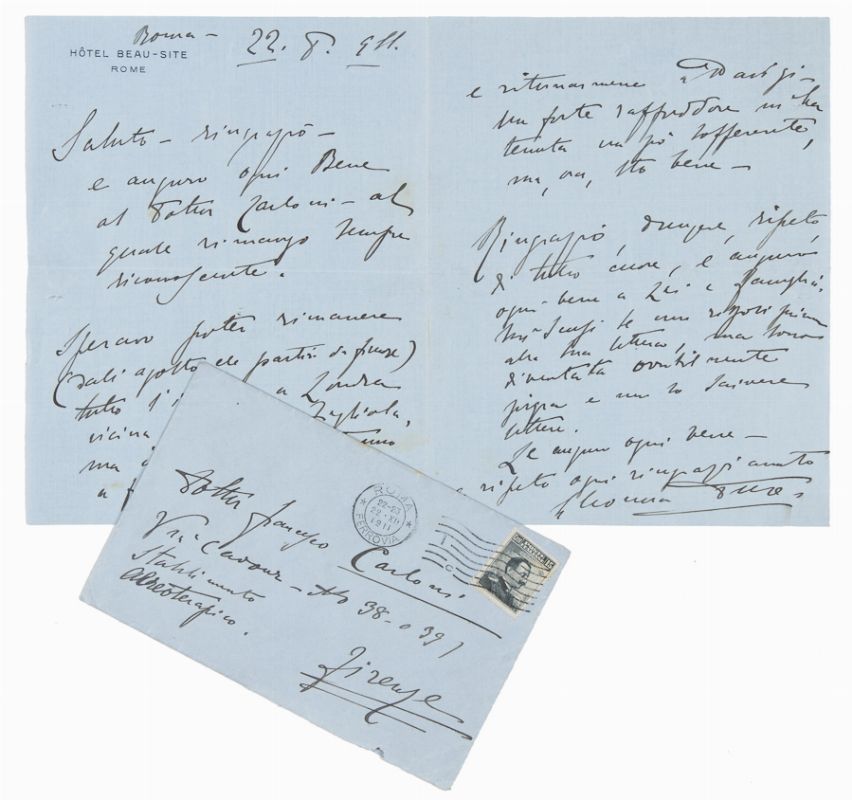 Roma -
HÔTEL BEAU-SITE
ROME
22. 911.
Saluto - ringrazio -
e auguro ogni Bene
al Dottor Carloni - al
quale rimango sempre
riconoscente.
Speravo poter rimanere
(dall agosto che partii da firenze)
tutto l' a Londra
vicina
ma
a
e ritornarmene a Parigi -
Un forte raffreddore m'ha
tenuta un pò sofferente,
ma, ora, sto bene -
Ringrazio, dunque, ripeto
di tutto cuore, e auguro
ogni bene a Lei e famiglia.
Mi scusi se non risposi prima
alla sua lettera, ma sono
diventata orribilmente
pigra e non so scrivere
lettere.
Le auguro ogni bene -
ripeto ogni ringraziamento
Eleonora Duse -
Dottor Francesco Carloni
Via Cavour - No 38 - o 39
Stabilimento
Aereoterapico.
Firenze
ROMA
22-23
22 XII
1911
FERROVIA